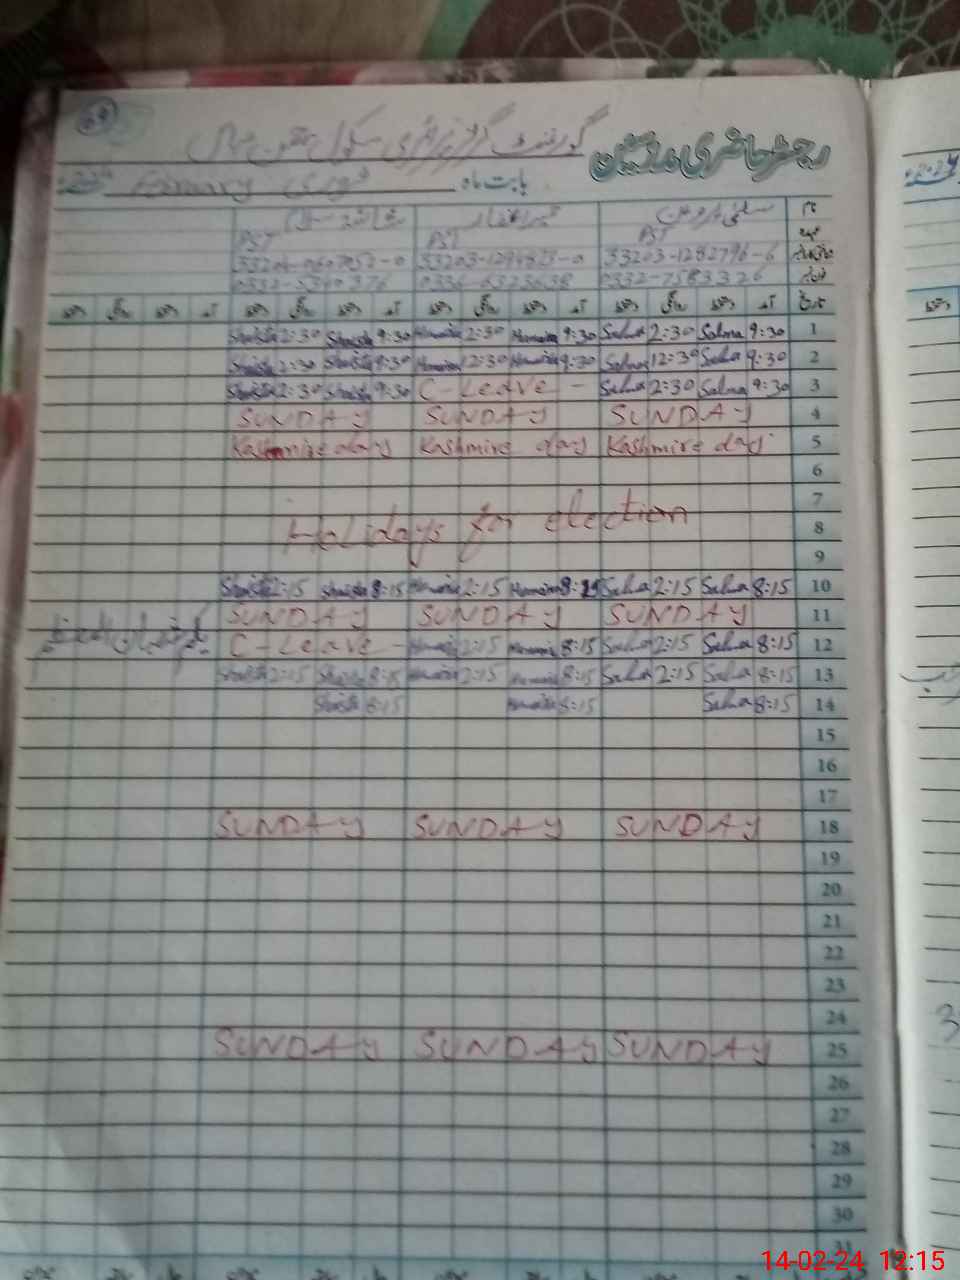 69
گورنمنٹ گرلز پرائمری سکول
رجسٹر حاضری مدرسین
بابت ماہ فروری February
نام سلمیٰ پروین
عہدہ PST PST PST
33203-1282796-6 33203-1294823-0
0332-7583326
تاریخ آمد دستخط روانگی دستخط آمد دستخط روانگی دستخط آمد دستخط روانگی دستخط آمد دستخط روانگی دستخط
Shaista 2:30 Shaista 9:30 Humaira 2:30 Humaira 9:30 Salma 2:30 Salma 9:30 1
Shaista 2:30 Shaista 9:30 Humaira 12:30 Humaira 9:30 Salma 12:30 Salma 9:30 2
Shaista 2:30 Shaista 9:30 C-Leave - Salma 2:30 Salma 9:30 3
SUNDAY SUNDAY SUNDAY 4
Kashmire day Kashmire day Kashmire day 5
6
7
Halidays for election 8
9
Shaista 2:15 Shaista 8:15 Humaira 2:15 Humaira 8:15 Salma 2:15 Salma 8:15 10
SUNDAY SUNDAY SUNDAY 11
یکم شعبان المعظم C-Leave - Humaira 2:15 Humaira 8:15 Salma 2:15 Salma 8:15 12
Shaista 2:15 Shaista 8:15 Humaira 2:15 Humaira 8:15 Salma 2:15 Salma 8:15 13
Shaista 8:15 Humaira 8:15 Salma 8:15 14
15
16
17
SUNDAY SUNDAY SUNDAY 18
19
20
21
22
23
24
SUNDAY SUNDAY SUNDAY 25
26
27
28
29
30
31
14-02-24 12:15